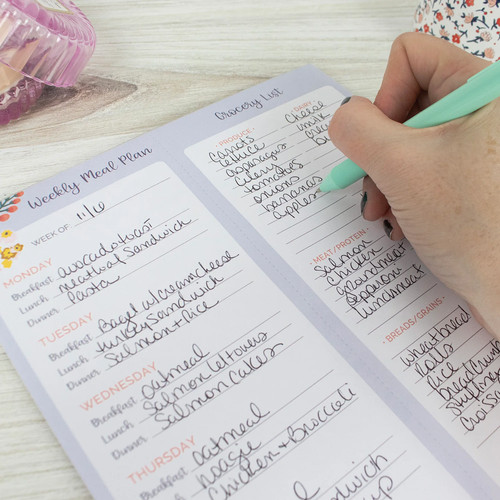 Weekly Meal Plan
WEEK OF: 11/6
MONDAY
Breakfast avocado toast
Lunch meatball Sandwich
Dinner Pasta
TUESDAY
Breakfast Bagel w/creamcheese
Lunch turkey Sandwich
Dinner Salmon + Rice
WEDNESDAY
Breakfast oatmeal
Lunch Salmon leftovers
Dinner Salmon Cakes
THURSDAY
Breakfast oatmeal
Lunch hoagie
Dinner Chicken + Broccoli
Grocery List
PRODUCE
carrots
lettuce
asparagus
celery
tomatoes
onions
bananas
apples
DAIRY
Cheese
milk
MEAT/PROTEIN
Salmon
chicken
ground meat
pepperoni
lunchmeat
BREADS/GRAINS
wheat bread
rolls
rice